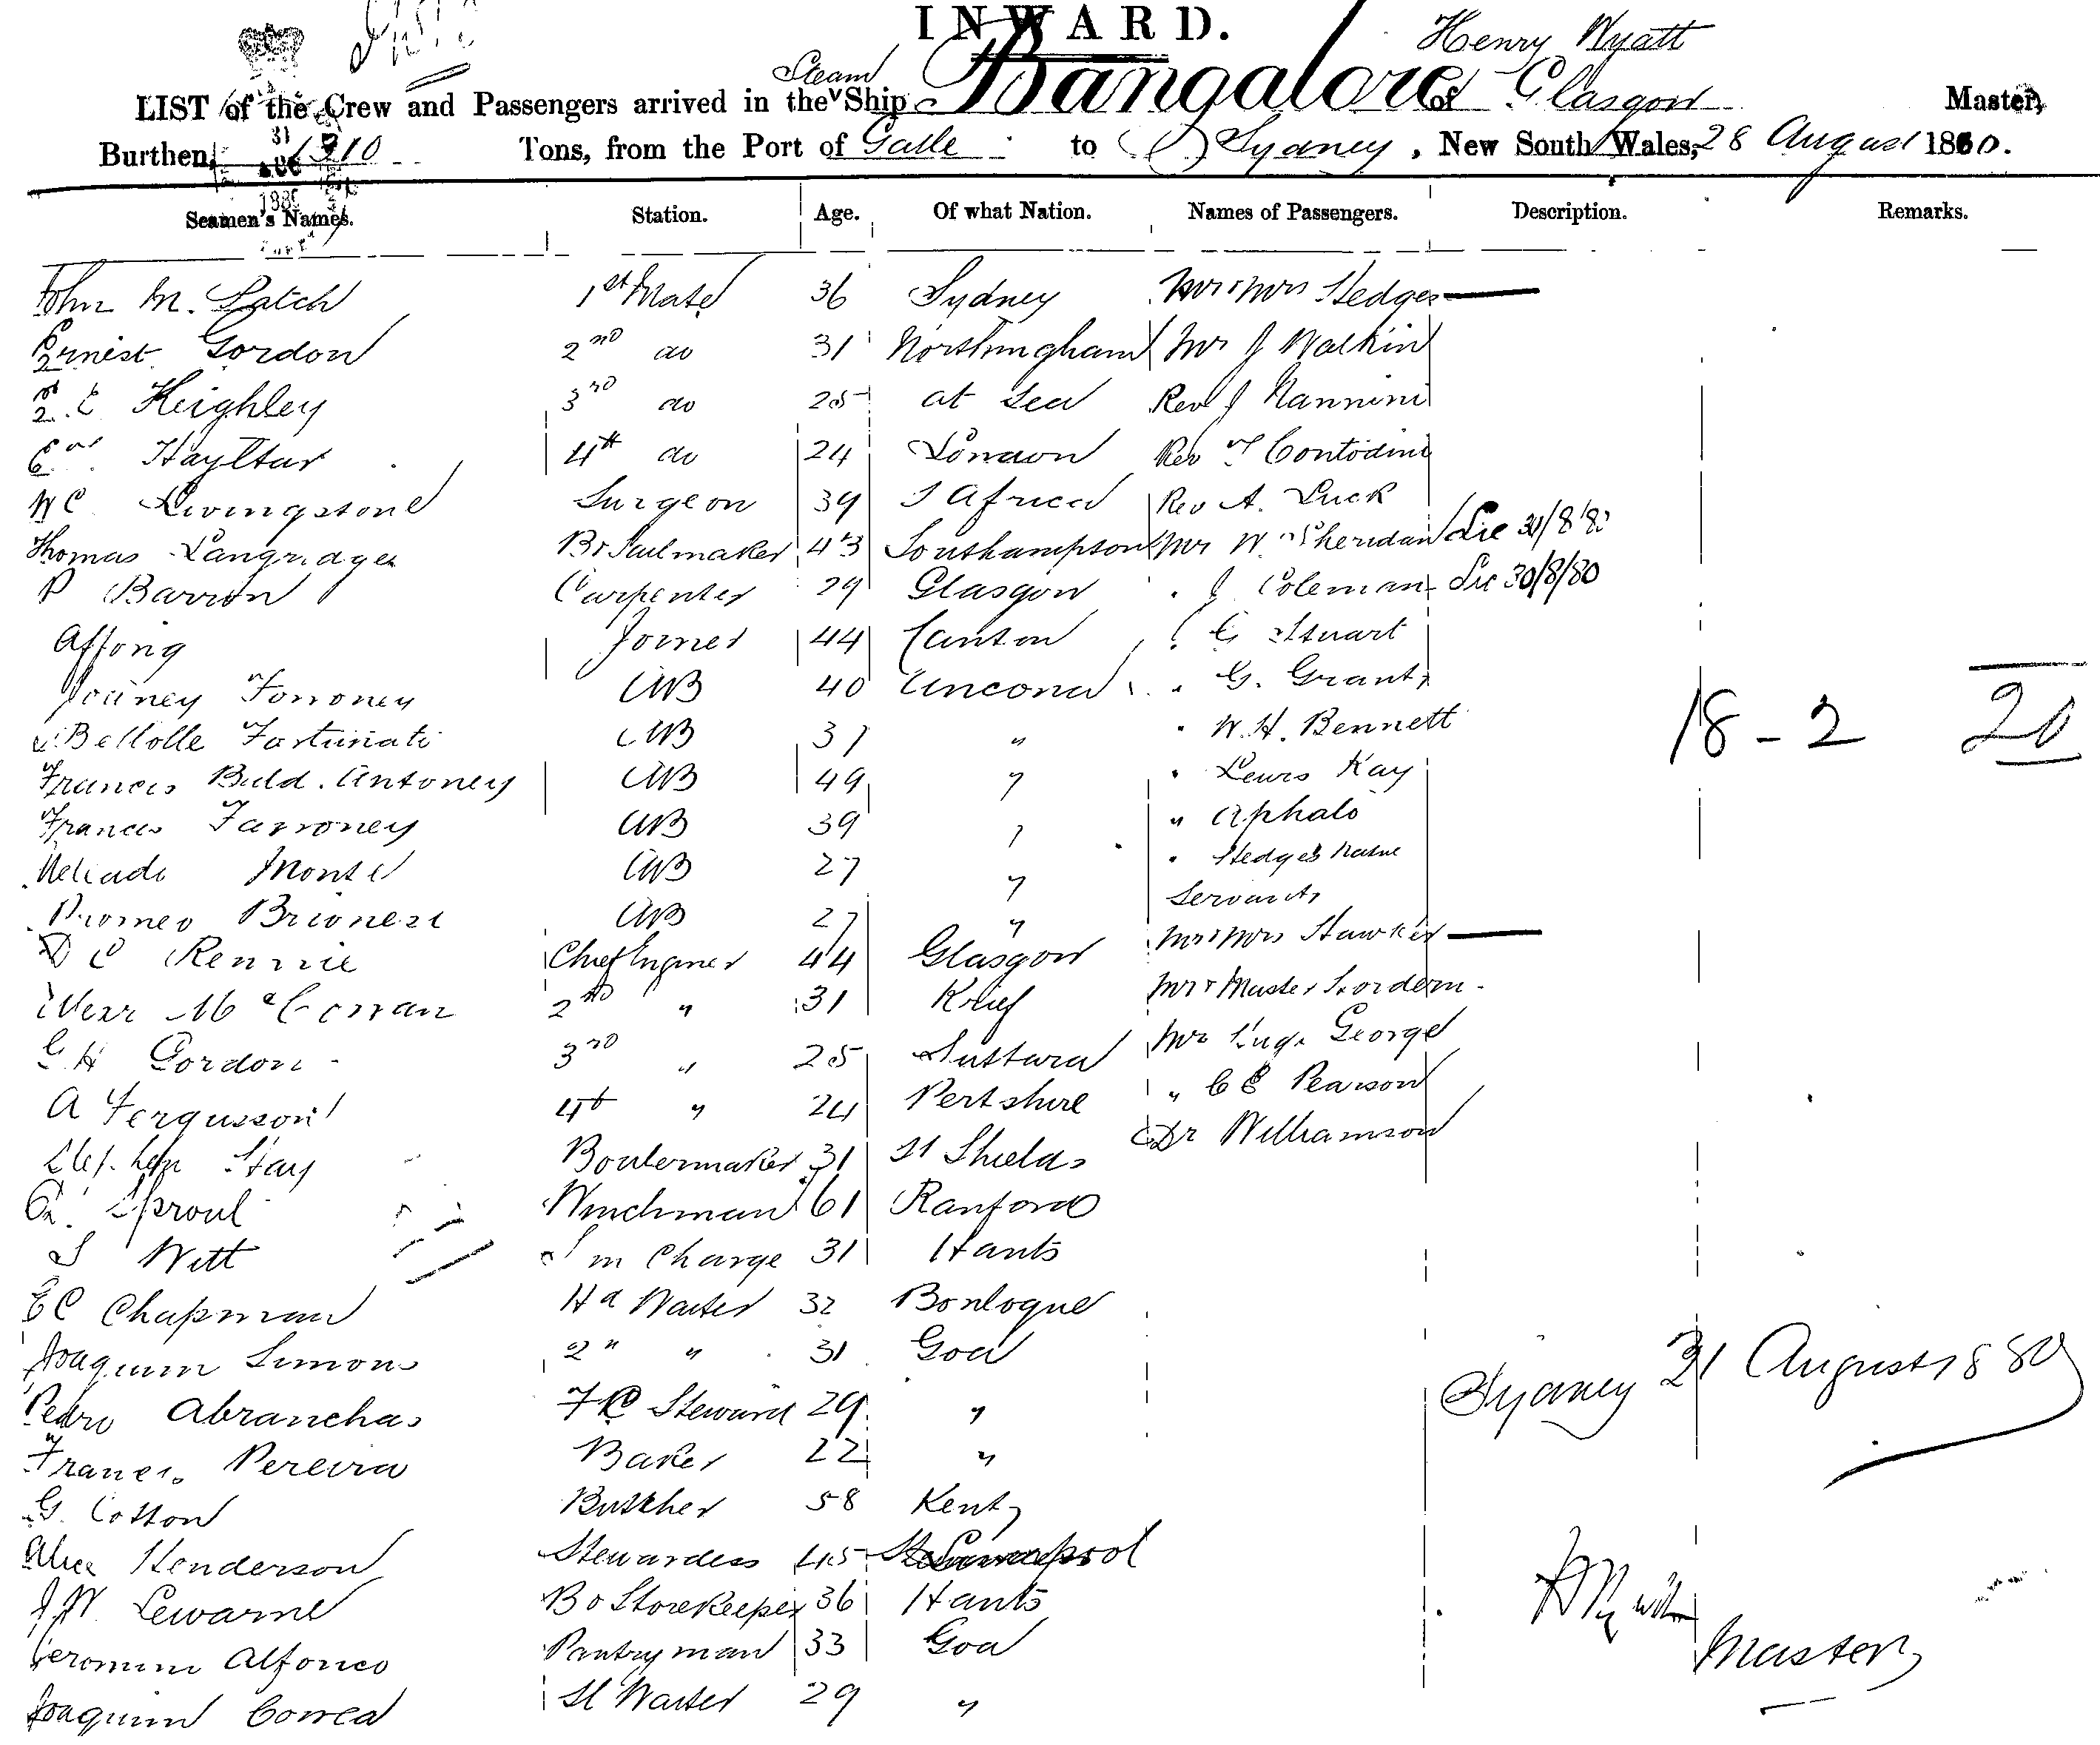 INWARD.
Henry Wyatt
Steam
LIST of the Crew and Passengers arrived in the Ship Bangalore of Glasgow Master,
Burthen, 1310 Tons, from the Port of Galle to Sydney, New South Wales, 28 August 1880.
Seamen's Names. Station. Age. Of what Nation. Names of Passengers. Description. Remarks.
John M. Latch 1st Mate 36 Sydney Mr & Mrs Hedges
Ernest Gordon 2nd do 31 Northingham Mr J Walkin
Keighley 3rd do 25 at Sea Rev J Nannini
Hayltar 4th do 24 London Rev Contodini
W C Livingstone Surgeon 39 S Africa Rev A. Luck
Thomas Langridge Br Sailmaker 43 Southampton Mr W Sheridan Lic
P Barron Carpenter 29 Glasgow " J Coleman Lic 30/8/80
Affong Joiner 44 Canton G Stuart
Forroney AB 40 Ancona " G. Grant
Bellolle Fortunati AB 37 " " W. H. Bennett
Francis Buld. Antoney AB 49 " " Lewis Kay
18 - 2 20
Francis Farroney AB 39 " " Aphalo
Monte AB 27 " " Hedges Native
Romeo Brionesi AB 27 " Servants
D C Rennie Chief Enginer 44 Glasgow Mr & Mrs Hawker
2nd " 31 Krief Mr & Master
G H Gordon 3rd " 25 Suttara Mr Hugh George
A Fergusson 4th " 24 Pertshire " C E Pearson
Stephen Hay Boilermaker 31 St Shields Dr Williamson
Sproul Winchman 61 Ranford
S Witt S in Charge 31 Hants
E C Chapman Hd Waiter 32 Bonlogne
Joaquim Simons 2" " 31 Goa
Sydney 31 August 1880
Pedro Abranchas Steward 29 "
Francis Pereira Baker 22 "
G. Cotton Butcher 58 Kent
Alice Henderson Stewardess 45
J W. Lewarne Bo Storekeeper 36 Hants
H Wyatt
Geronimi Alfonco Pantryman 33 Goa
Master
Joaquim Correa Sl Waiter 29 "